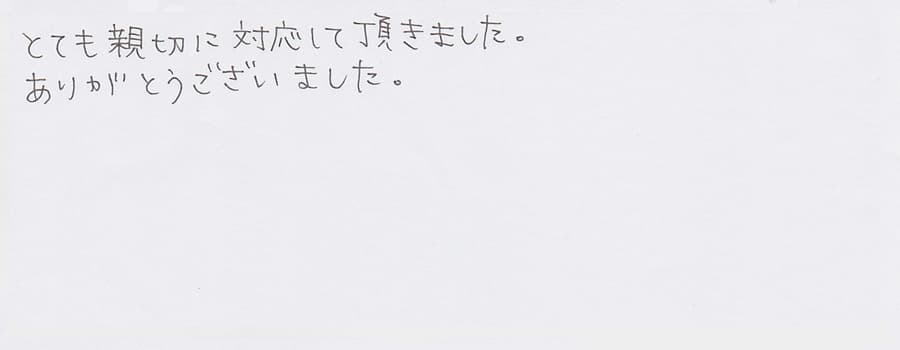 とても親切に対応して頂きました。
ありがとうございました。